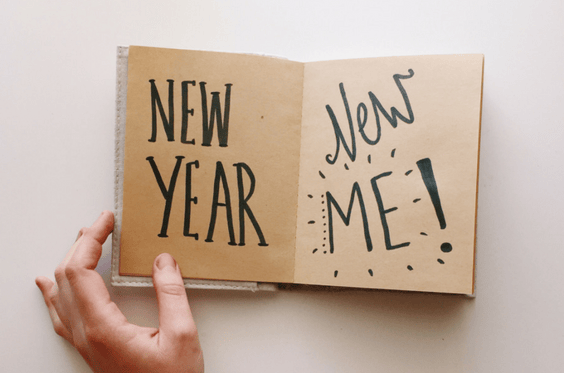 NEW
YEAR
New
ME!